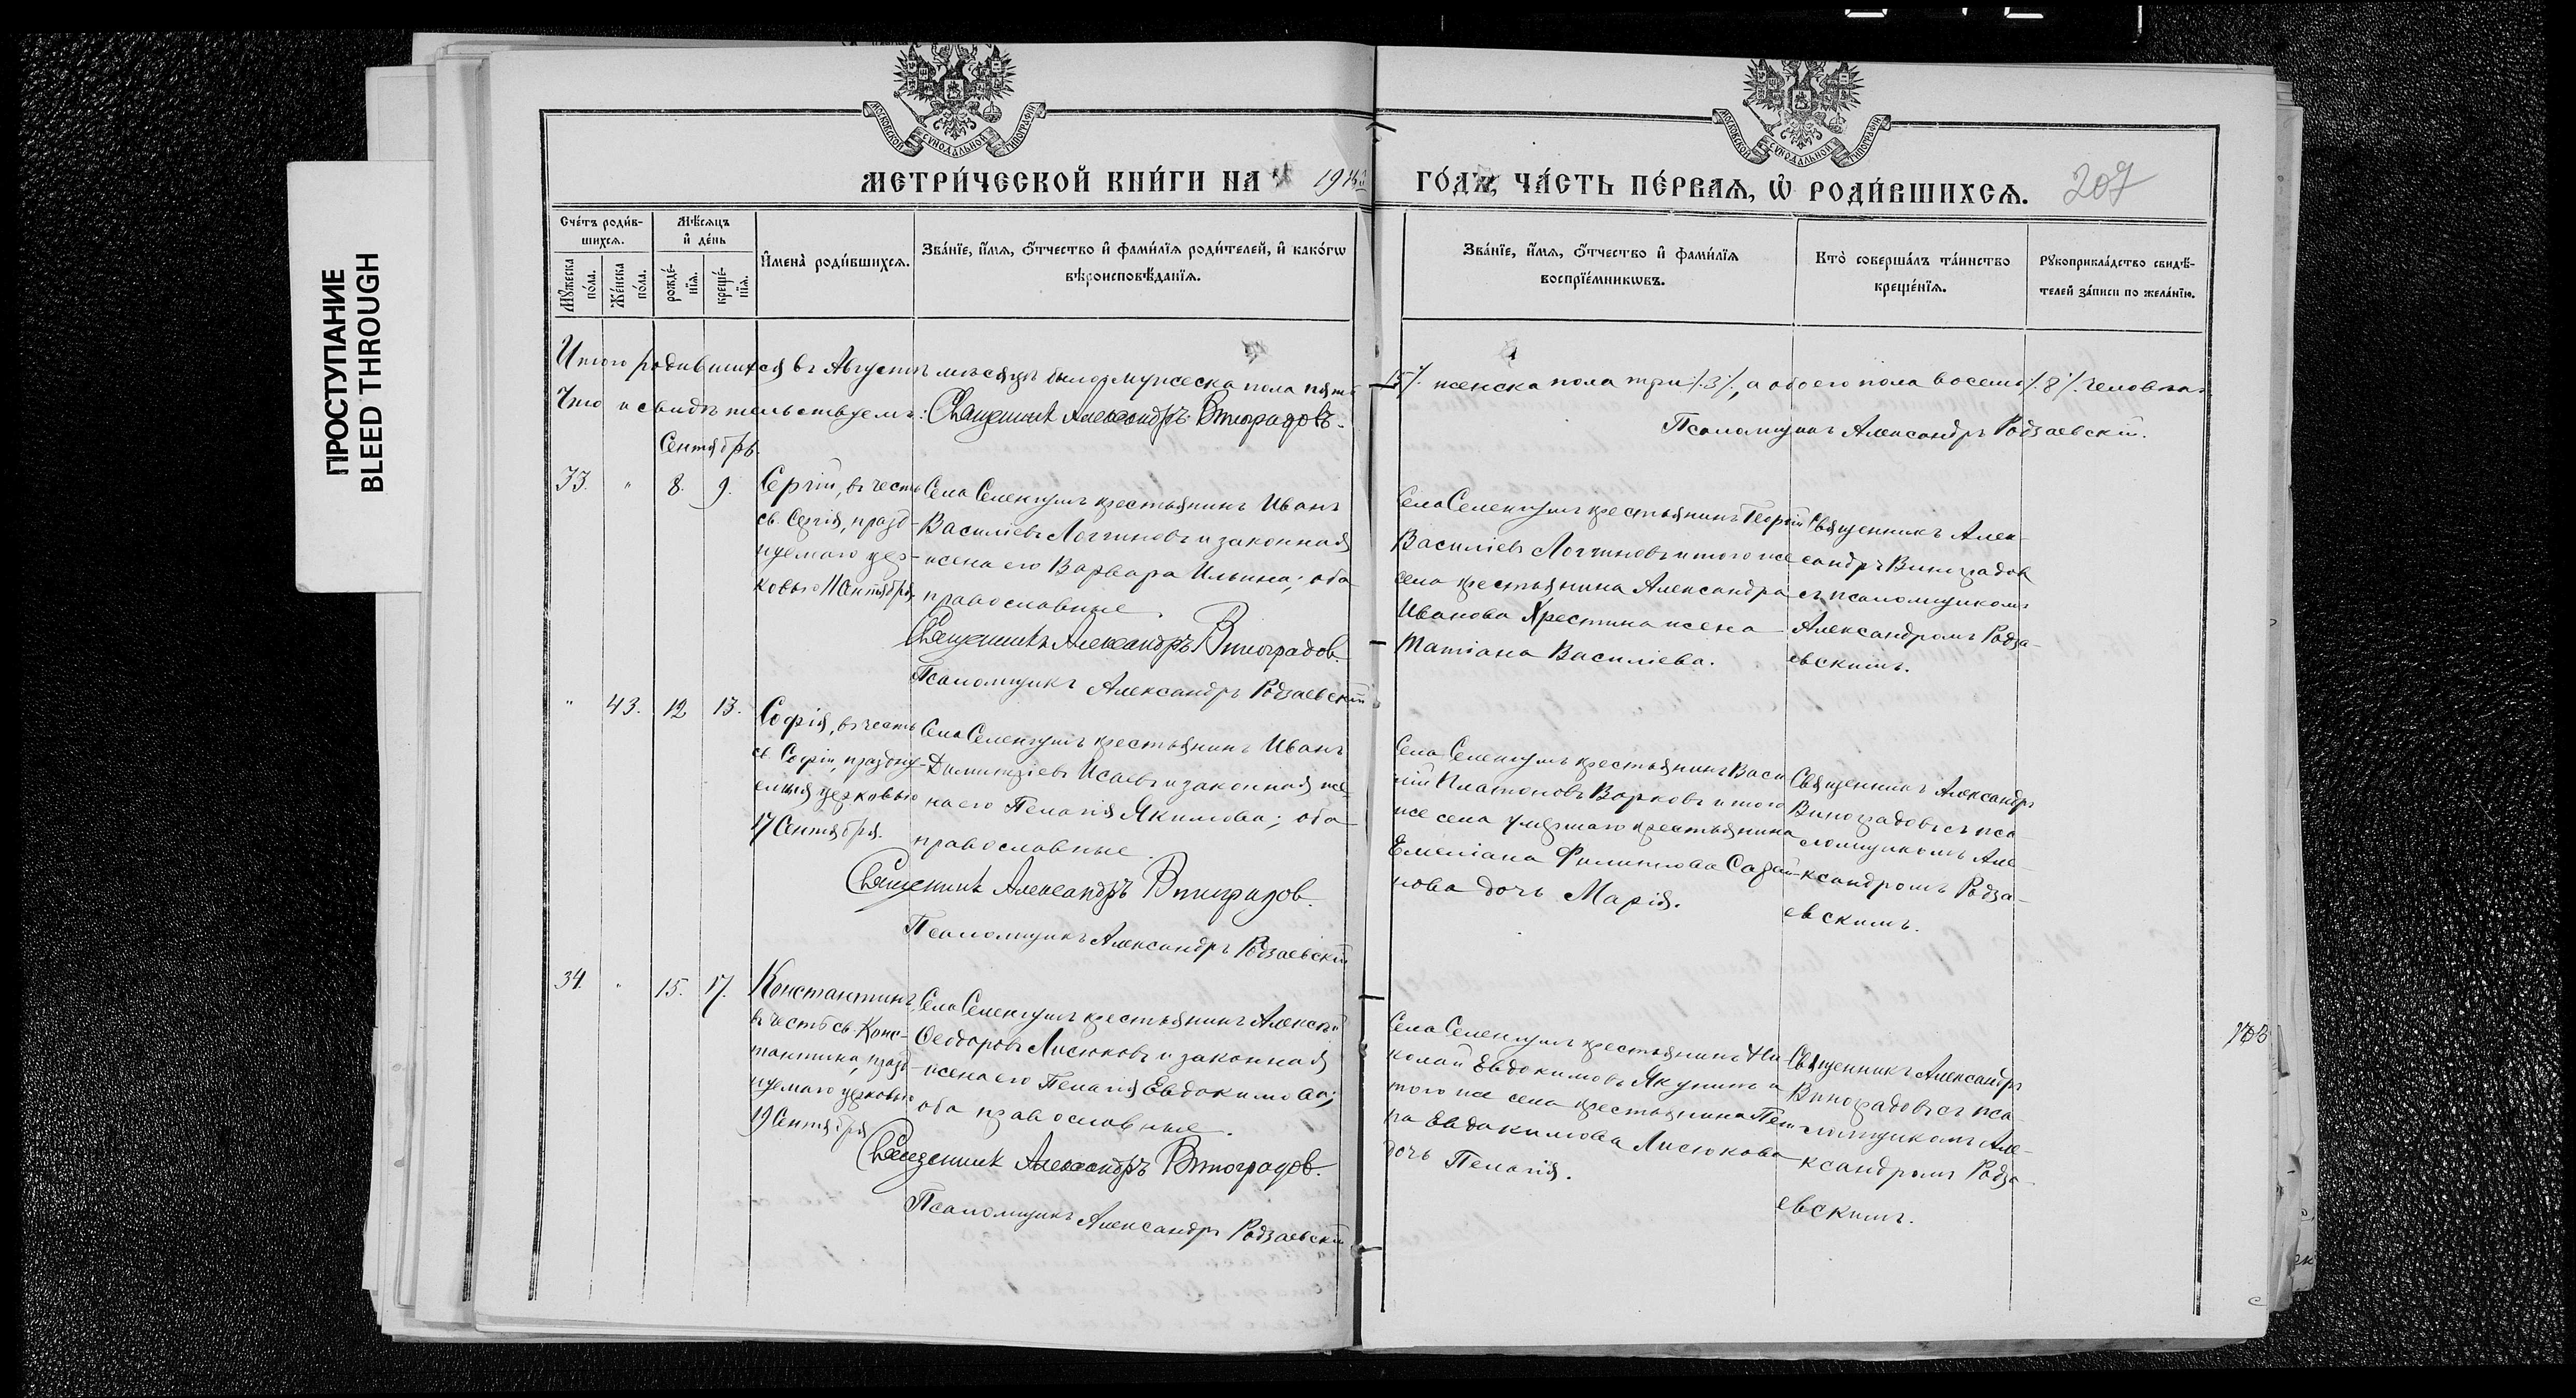 МОСКОВСКОЙ СѴНОДАЛЬНОЙ ТИПОГРАФІИ
МОСКОВСКОЙ СѴНОДАЛЬНОЙ ТИПОГРАФІИ
МЕТРИ́ЧЕСКОЙ КНИ́ГИ НА
ГО́ДЪ, ЧА́СТЬ ПЕ́РВАѦ, Ѿ РОДИ́ВШИХСѦ.
207
ПРОСТУПАНИЕ
BLEED THROUGH
Сче́тъ роди́в-
шихсѧ.
Мꙋ́жеска
по́ла.
Же́нска
по́ла.
Мѣ́сѧцъ
и҆ де́нь
рожде́-
нїѧ.
креще́-
нїѧ.
И҆мена̀ роди́вшихсѧ.
Зва́нїе, и҆́мѧ, ѻ҆́тчество и҆ фами́лїѧ роди́телей, и҆ како́гѡ
вѣроисповѣ́данїѧ.
Зва́нїе, и҆́мѧ, ѻ҆́тчество и҆ фами́лїѧ
воспрїе́мникѡвъ.
Кто̀ соверша́лъ та́инство
креще́нїѧ.
Рꙋкоприкла́дство свидѣ́-
телей за́писи по жела́нїю.
Итого родившихся въ Августѣ мѣсяцѣ было: мужеска пола пять
/5/. женска пола три /.3/., а обоего пола восемь /.8/. человѣкъ
Что и свидѣтельствуемъ: Священникъ Александръ Виноградовъ.
Псаломщикъ Александръ Родзаевскій.
Сентябрь.
33. " 8. 9.
Сергій, въ честь
св. Сергія, празд-
нуемаго цер-
ковью Сентября.
Села Селенгушъ крестьянинъ Иванъ
Василіевъ Логгиновъ и законная
жена его Варвара Ильина; оба
православные.
Священникъ Александръ Виноградов.
Псаломщикъ Александръ Родзаевскій
Села Селенгушъ крестьянинъ Георгій
Василіевъ Логгиновъ и того же
села крестьянина Александра
Иванова Хрестина жена
Татіана Василіева.
Священникъ Алек-
сандръ Виноградов
съ псаломщикомъ
Александромъ Родза-
евскимъ.
" 43. 12 13.
Софія, въ честь
св. Софіи, праздну-
емыя церковью
17 Сентября.
Села Селенгушъ крестьянинъ Иванъ
Димитріевъ Исаевъ и законная же-
на его Пелагія Якимова; оба
православные.
Священникъ Александръ Виноградов.
Псаломщикъ Александръ Родзаевскій
Села Селенгушъ крестьянинъ Васи
лій Платоновъ Варковъ и того
же села умершаго крестьянина
Емеліана Филиппова
нова дочь Марія.
Священникъ Александръ
Виноградовъ съ пса
ломщикомъ Але-
ксандромъ Родза-
евскимъ.
34. " 15. 17.
Константинъ,
въ честь св. Конс-
тантина, празд-
нуемаго церковью
19 Сентября
Села Селенгушъ крестьянинъ Алексѣй
Ѳеодоровъ Лисюковъ и законная
жена его Пелагія Евдокимова;
оба православные.
Священникъ Александръ Виноградов.
Псаломщикъ Александръ Родзаевскій
Села Селенгушъ крестьянинъ Ни
колай Евдокимовъ Якунинъ и
того же села крестьянина Пет
ра Евдокимова Лисюкова
дочь Пелагія.
Священникъ Александръ
Виноградовъ съ пса-
ломщикомъ Але-
ксандромъ Родза-
евскимъ.